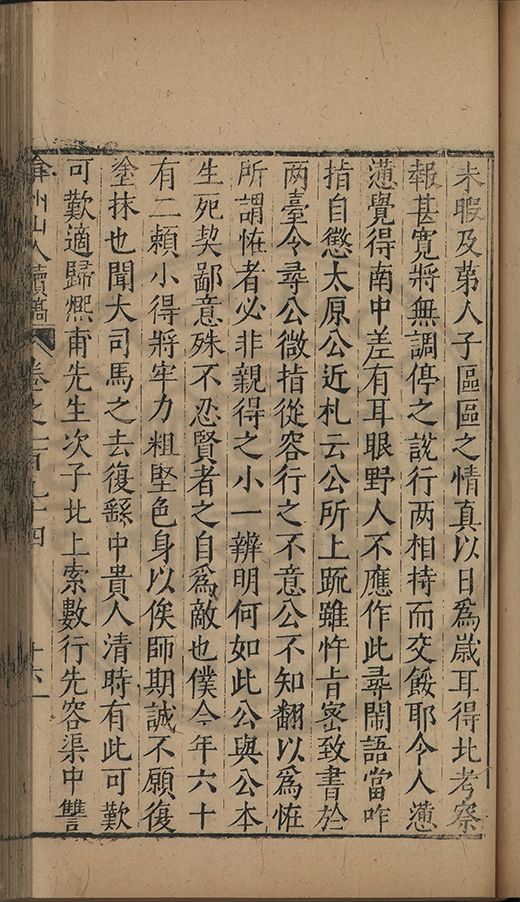 未暇及第人子區區之情真以日爲歲耳得北考察
報甚寬將無調停之説行两相持而交餒耶今人懣
懣覺得南中差有耳眼野人不應作此尋閙語當咋
指自懲太原公近札云公所上䟽雖忤㫖宻致書於
两臺令尋公微指從容行之不意公不知翻以爲恠
所謂恠者必非親得之小一辨明何如此公與公本
生死契鄙意殊不忍賢者之自爲敵也僕今年六十
有二頼小得將牢力粗堅色身以俟師期誠不願復
塗抹也聞大司馬之去復繇中貴人清時有此可歎
可歎適歸熈甫先生次子北上索數行先容渠中讐
弇州山人續稿 卷之一百九十四